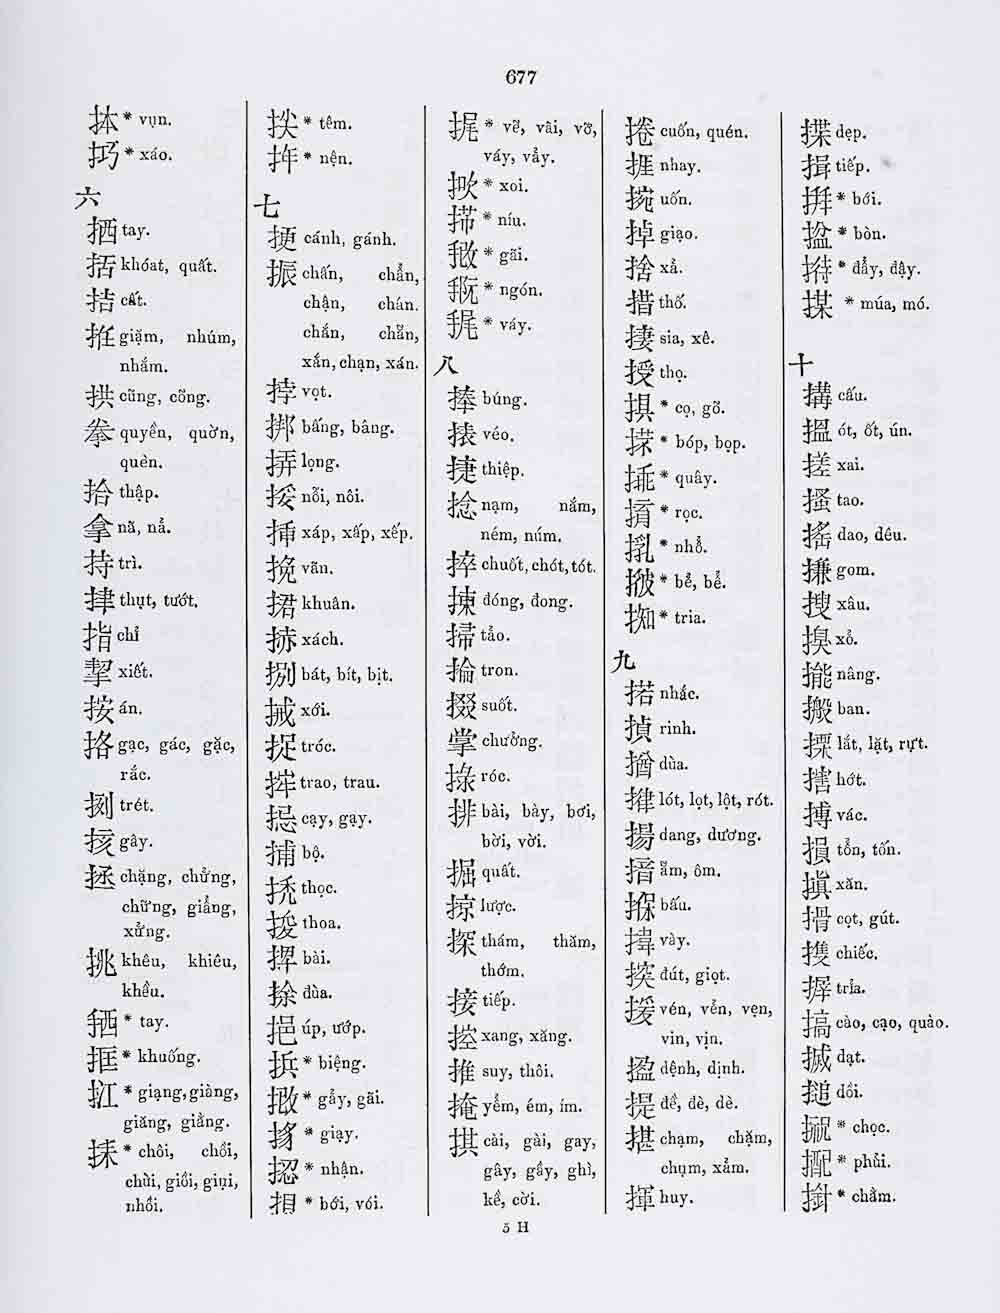 677
* vụn.
* xáo.
六
拪 tay.
括 khóat, quất.
拮 cất.
giặm, nhúm,
nhắm.
拱 cũng, cõng.
拳 quyền, quờn,
quèn.
拾 thập.
拿 nã, nả.
持 trì.
thụt, tướt.
指 chỉ
挈 xiết.
按 án.
挌 gạc, gác, gặc,
rắc.
挒 trét.
挼 gây.
拯 chặng, chửng,
chững, giẳng,
xửng.
挑 khêu, khiêu,
khều.
* tay.
* khuống.
扛 * giạng, giàng,
giăng, giằng.
* chôi, chồi,
chùi, giồi, giụi,
nhồi.
* têm.
* nện.
七
挭 cánh, gánh.
振 chấn, chẩn,
chận, chán.
chắn, chẵn,
xắn, chạn, xán.
挬 vọt.
bấng, bâng.
挵 lọng.
挼 nỗi, nôi.
挿 xáp, xấp, xếp.
挽 vãn.
捃 khuân.
xách.
捌 bát, bít, bịt.
xới.
捉 tróc.
trao, trau.
cạy, gạy.
捕 bộ.
thọc.
捘 thoa.
bài.
捈 dùa.
挹 úp, ướp.
* biệng.
* gẩy, gãi.
* giạy.
* nhận.
* bới, vói.
* vẽ, vãi, vỡ,
váy, vẩy.
* xoi.
* níu.
* gãi.
* ngón.
* váy.
八
捧 búng.
véo.
捷 thiệp.
捻 nạm, nắm,
ném, núm.
捽 chuốt, chót, tót.
dóng, đong.
掃 tảo.
掄 tron.
掇 suốt.
掌 chưởng.
róc.
排 bài, bày, bơi,
bời, vời.
掘 quất.
掠 lược.
探 thám, thăm,
thớm.
接 tiếp.
控 xang, xăng.
推 suy, thôi.
掩 yểm, ém, ím.
cài, gài, gay,
gây, gẩy, ghì,
kề, cời.
捲 cuốn, quén.
捱 nhay.
捥 uốn.
掉 giạo.
捨 xả.
措 thố.
sia, xê.
授 thọ.
* cọ, gõ.
* bóp, bọp.
* quây.
* rọc.
* nhổ.
* bẻ, bẽ.
* tria.
九
掿 nhắc.
rinh.
dùa.
lót, lọt, lột, rót.
揚 dang, dương.
揞 ẵm, ôm.
bấu.
vày.
揬 đút, giọt.
援 vén, vẻn, vẹn,
vin, vịn.
dệnh, dịnh.
提 đề, đè, dè.
揕 chạm, chặm,
chụm, xắm.
揮 huy.
揲 dẹp.
揖 tiếp.
* bới.
* bòn.
* đẩy, đậy.
* múa, mó.
十
搆 cấu.
搵 ót, ốt, ún.
搓 xai.
搔 tao.
搖 dao, dêu.
搛 gom.
搜 xâu.
xỏ.
nâng.
搬 ban.
lắt, lặt, rựt.
hớt.
搏 vác.
損 tổn, tốn.
搷 xăn.
搰 cọt, gút.
chiếc.
trỉa.
搞 cào, cạo, quào.
搣 dạt.
搥 dồi.
* chọc.
* phủi.
* chằm.
5 H